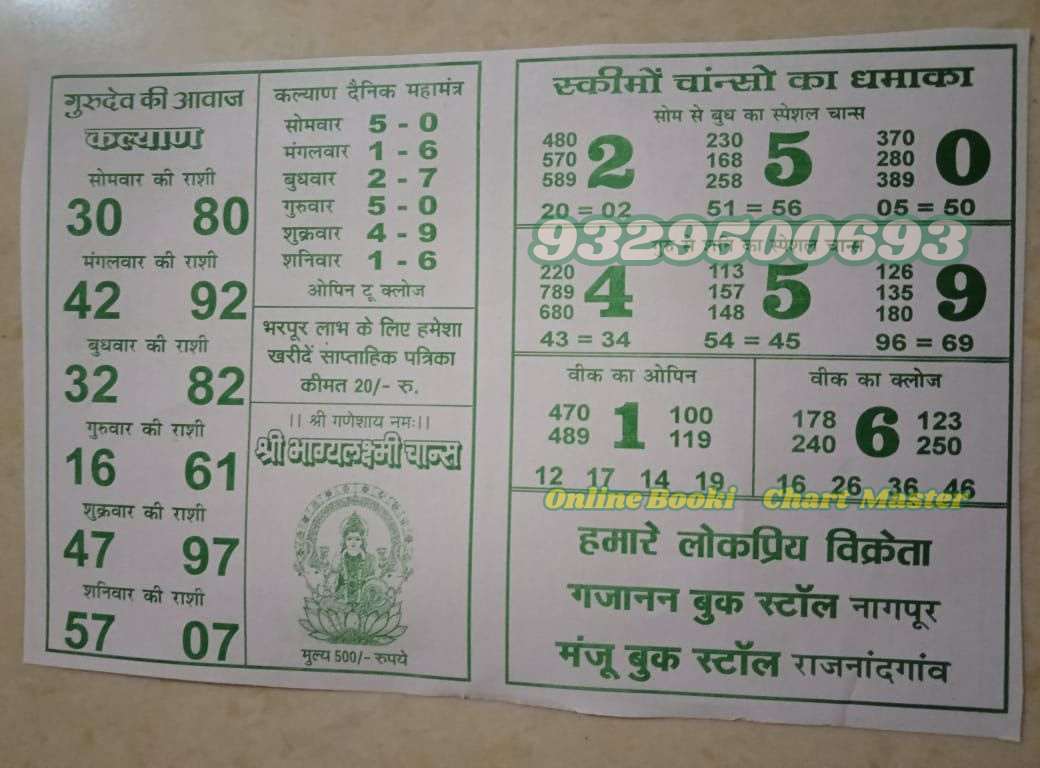 गुरुदेव की आवाज
कल्याण
सोमवार की राशी
30 80
मंगलवार की राशी
42 92
बुधवार की राशी
32 82
गुरुवार की राशी
16 61
शुक्रवार की राशी
47 97
शनिवार की राशी
57 07
कल्याण दैनिक महामंत्र
सोमवार 5 - 0
मंगलवार 1 - 6
बुधवार 2 - 7
गुरुवार 5 - 0
शुक्रवार 4 - 9
शनिवार 1 - 6
ओपिन टू क्लोज
भरपूर लाभ के लिए हमेशा
खरीदें साप्ताहिक पत्रिका
कीमत 20/- रु.
।। श्री गणेशाय नमः।।
श्री भाग्यलक्ष्मी चान्स
मुल्य 500/- रुपये
स्कीमों चांन्सो का धमाका
सोम से बुध का स्पेशल चान्स
480 230 370
570 2 168 5 280 0
589 258 389
20 = 02 51 = 56 05 = 50
9329500693
का स्पेशल चान्स
220 113 126
789 4 157 5 135 9
680 148 180
43 = 34 54 = 45 96 = 69
वीक का ओपिन
470 1 100
489 119
12 17 14 19
वीक का क्लोज
178 6 123
240 250
16 26 36 46
Online Booki Chart Master
हमारे लोकप्रिय विक्रेता
गजानन बुक स्टॉल नागपूर
मंजू बुक स्टॉल राजनांदगांव